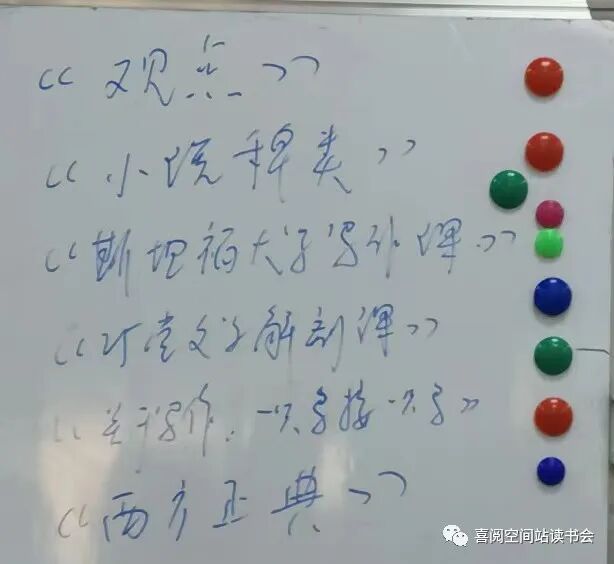 《观点》
《小说稗类》
《斯坦福大学写作课》
《21堂文学解剖课》
《关于写作：一只鸟接一只鸟》
《西方正典》
喜阅空间站读书会